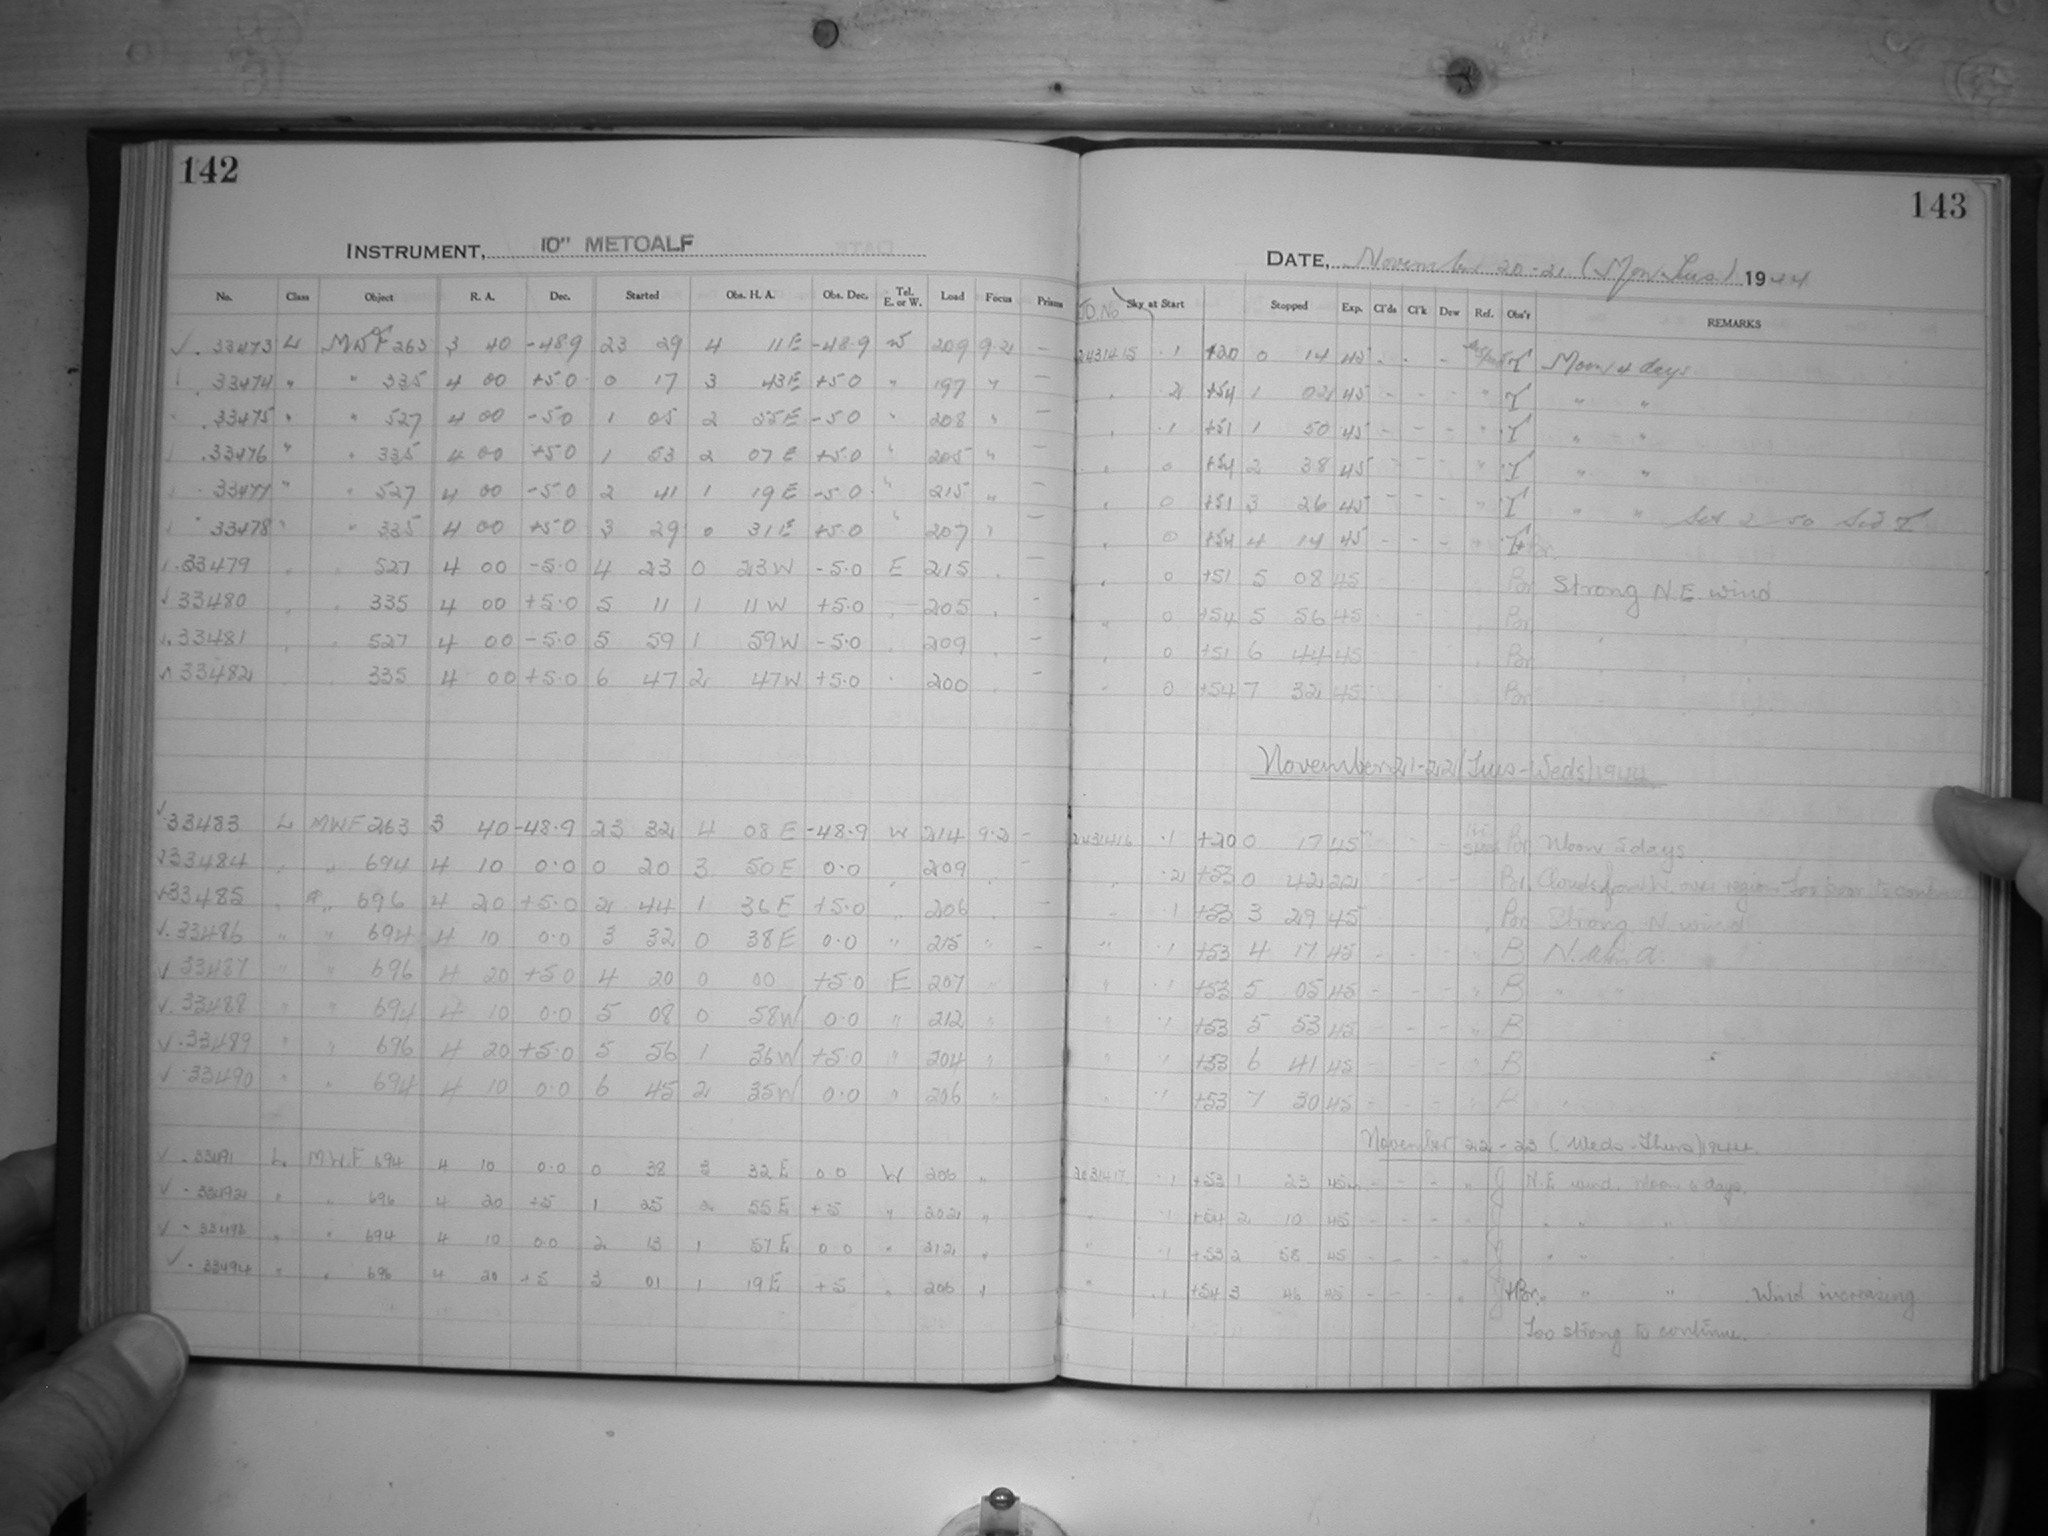 142
143
INSTRUMENT, 10" METCALF
DATE, November 20-21 (Mon-Tues.) 1944
No. Class Object R. A. Dec. Started Obs. H. A. Obs. Dec. Tel. E. or W. Load Focus Prisms JD. No Sky at Start Stopped Exp. Cl'ds Cl'k Dew Ref. Obs'r REMARKS
✓ . 33473 L MWF 263 3 40 -48.9 23 29 4 11 E -48.9 W 209 9.2 - 2431415 .1 +20 0 14 45 - - - T Moon 4 days
33474 " " 335 4 00 +5.0 0 17 3 43 E +5.0 " 197 " - .2 +54 1 02 45 - - - " T " "
.33475 " " 527 4 00 -5.0 1 05 2 55 E -5.0 " 208 " - .1 +51 1 50 45 - - - " T " "
.33476 " " 335 4 00 +5.0 1 53 2 07 E +5.0 " 205 " - 0 +54 2 38 45 - - - " T " "
33477 " " 527 4 00 -5.0 2 41 1 19 E -5.0 " 215 " - 0 +51 3 26 45 - - - " T " "
33478 " " 335 4 00 +5.0 3 29 0 31 E +5.0 " 207 " - 0 +54 4 14 45 - - - " T+Br.
.33479 527 4 00 -5.0 4 23 0 23 W -5.0 E 215 - 0 +51 5 08 45 Br Strong N.E. wind
✓ 33480 335 4 00 +5.0 5 11 1 11 W +5.0 205 - 0 +54 5 56 45 Br
.33481 527 4 00 -5.0 5 59 1 59 W -5.0 209 - 0 +51 6 44 45 Br
33482 335 4 00 +5.0 6 47 2 47 W +5.0 200 - 0 +54 7 32 45 Br
November 21-22 (Tues-Weds) 1944
✓ 33483 L MWF 263 3 40 -48.9 23 32 4 08 E -48.9 W 214 9.2 - 2431416 .1 +20 0 17 45 - - - Br Moon 5 days
✓ 33484 " 694 4 10 0.0 0 20 3 50 E 0.0 209 - .2 +53 0 42 22 - - - Br. Clouds from W. over region Too poor to continue
✓ 33485 696 4 20 +5.0 2 44 1 36 E +5.0 " 206 - .1 +53 3 29 45 Br Strong N. wind
✓ .33486 " " 694 4 10 0.0 3 32 0 38 E 0.0 " 215 " - " .1 +53 4 17 45 - - - " B N. wind.
✓ 33487 " " 696 4 20 +5.0 4 20 0 00 +5.0 E 207 " .1 +53 5 05 45 - - - " B "
✓ .33488 " " 694 4 10 0.0 5 08 0 58 W 0.0 " 212 " " .1 +53 5 53 45 - - - " B
✓ .33489 " " 696 4 20 +5.0 5 56 1 36 W +5.0 " 204 " " .1 +53 6 41 45 - - - " B
✓ .33490 " " 694 4 10 0.0 6 45 2 35 W 0.0 " 206 " " .1 +53 7 30 45 - - - " B
November 22-23 (Weds-Thurs) 1944.
✓ .33491 L MWF 694 4 10 0.0 0 38 3 32 E 0.0 W 206 " .1 +53 1 23 45 - - - " J N.E. wind. Moon 6 days.
✓ .33492 " " 696 4 20 +5 1 25 2 55 E +5 " 202 " " .1 +54 2 10 45 - - - " J " " "
✓ .33493 " " 694 4 10 0.0 2 13 1 57 E 0.0 " 212 " " .1 +53 2 58 45 - - - " J " "
✓ .33494 " " 696 4 20 +5 3 01 1 19 E +5 " 206 " " .1 +54 3 46 45 - - - " J+Br. " " " Wind increasing
Too strong to continue.